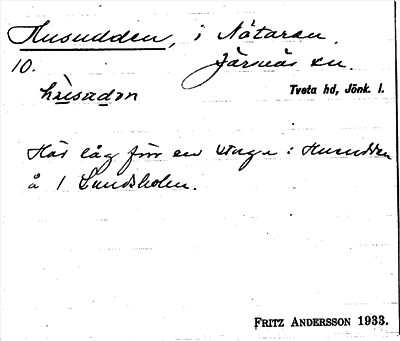 Husudden, i Nätaren
10. Järsnäs sn.
hùsudən Tveta hd, Jönk. l.
Här låg förr en stuga: Husudden
å / Lundsholen.
FRITZ ANDERSSON 1933.